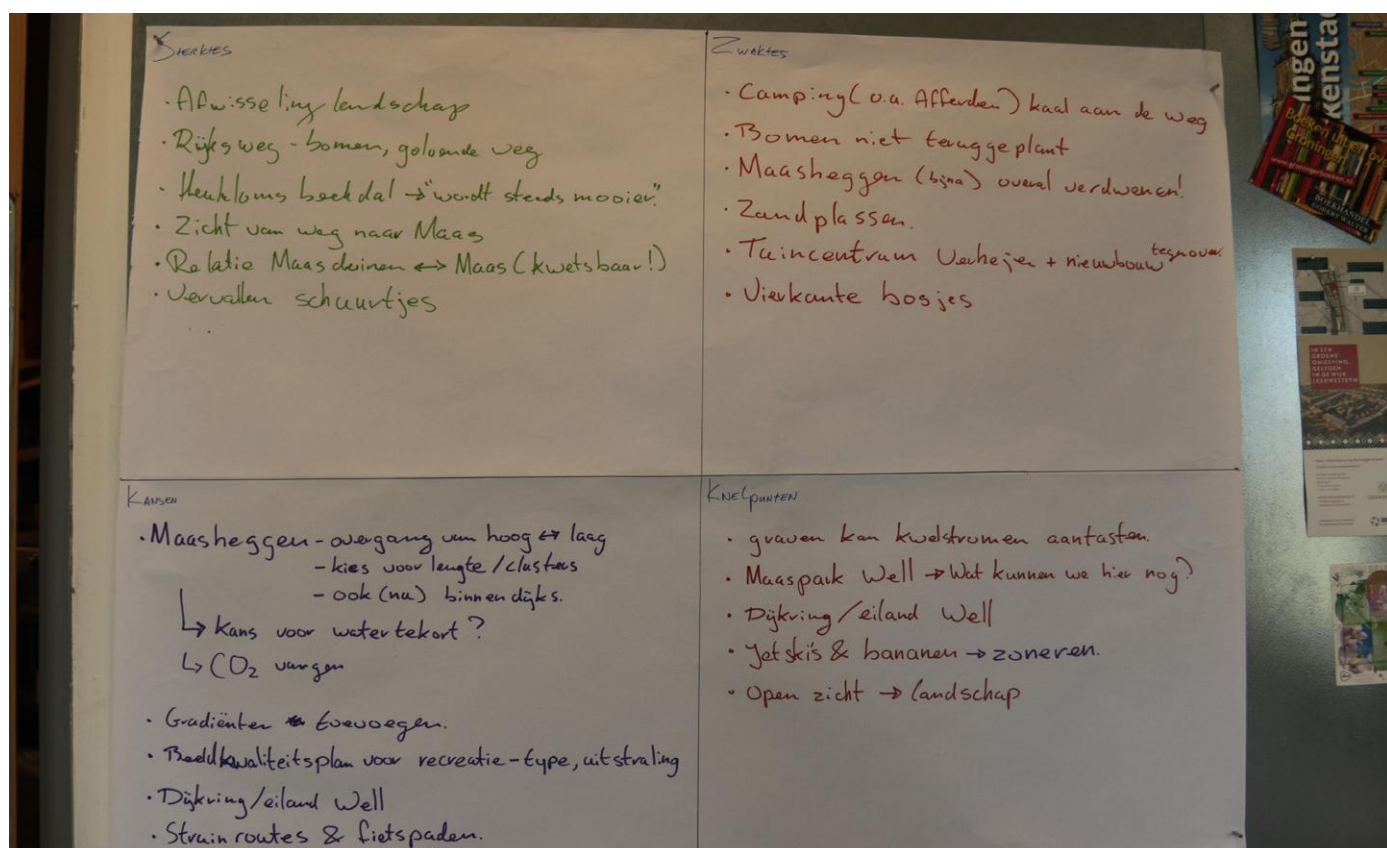 Sterktes
· Afwisseling landschap
· Rijksweg - bomen, golvende weg
· beekdal → "wordt steeds mooier".
· Zicht van weg naar Maas
· Relatie Maasduinen ↔ Maas (kwetsbaar!)
· Vervallen schuurtjes
...
Zwaktes
· Camping (o.a. Afferden) kaal aan de weg
· Bomen niet teruggeplant
· Maasheggen (bijna) overal verdwenen!
· Zandplassen.
· Tuincentrum Verheijen + nieuwbouw tegenover.
· Vierkante bosjes
Kansen
· Maasheggen - overgang van hoog ↔ laag
- kies voor lengte/clusters
- ook (nu) binnendijks.
↳ Kans voor watertekort?
↳ CO2 vangen
· Gradiënten toevoegen.
· Beeldkwaliteitsplan voor recreatie-type, uitstraling
· Dijkring/eiland Well
· Struinroutes & fietspaden.
Knelpunten
· graven kan kwelstromen aantasten.
· Maaspark Well → Wat kunnen we hier nog?
· Dijkring/eiland Well
· Jetski's & bananen → zoneren.
· Open zicht → landschap
ingen
kenstad
Boeken uit en over
Groningen
BOEKHANDEL
GODERT WALTER
IN EEN
GROENE
OMGEVING,
GELEGEN
IN DE WIJK